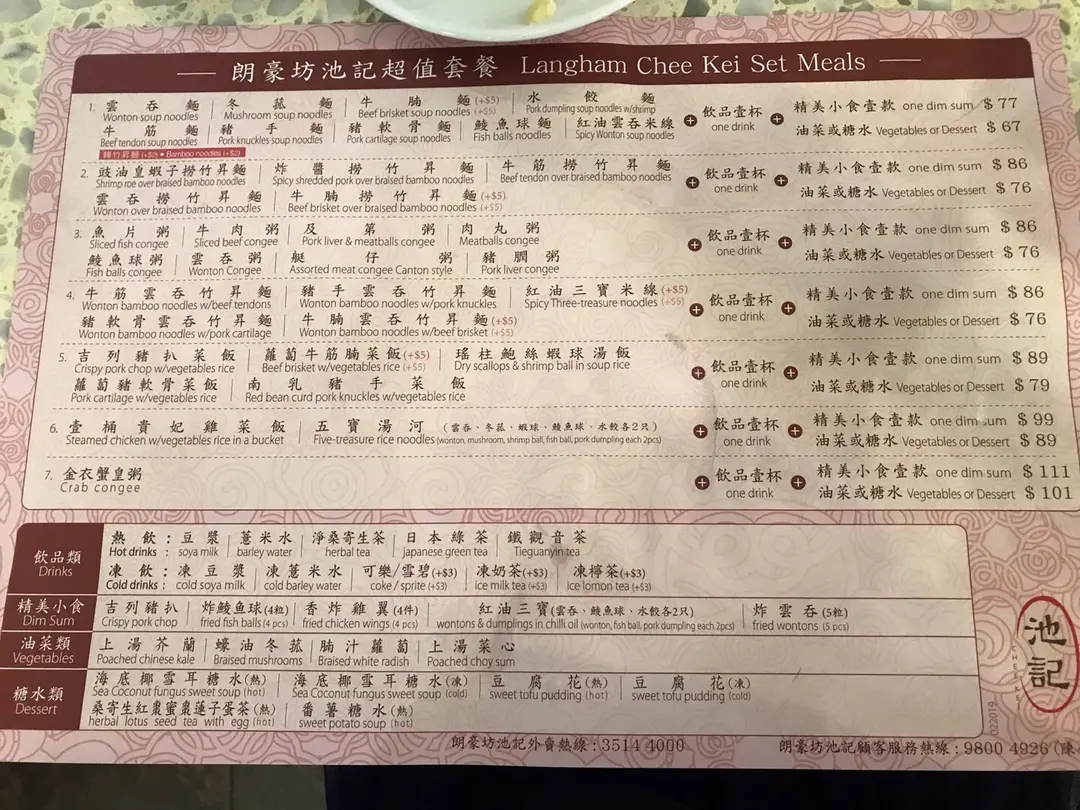 朗豪坊池記超值套餐 Langham Chee Kei Set Meals
1. 雲吞麵 冬菇麵 牛腩麵(+$5) 水餃麵
Wonton soup noodles Mushroom soup noodles Beef brisket soup noodles (+$5) Pork dumpling soup noodles w/shrimp
牛筋麵 豬手麵 豬軟骨麵 鯪魚球麵 紅油雲吞米線
Beef tendon soup noodles Pork knuckles soup noodles Pork cartilage soup noodles Fish balls noodles Spicy Wonton soup noodles
轉竹昇麵 (+$2) • Bamboo noodles (+$2)
+ 飲品壹杯 one drink + 精美小食壹款 one dim sum $77
油菜或糖水 Vegetables or Dessert $67
2. 豉油皇蝦子撈竹昇麵 炸醬撈竹昇麵 牛筋撈竹昇麵
Shrimp roe over braised bamboo noodles Spicy shredded pork over braised bamboo noodles Beef tendon over braised bamboo noodles
雲吞撈竹昇麵 牛腩撈竹昇麵(+$5)
Wonton over braised bamboo noodles Beef brisket over braised bamboo noodles (+$5)
+ 飲品壹杯 one drink + 精美小食壹款 one dim sum $86
油菜或糖水 Vegetables or Dessert $76
3. 魚片粥 牛肉粥 及第粥 肉丸粥
Sliced fish congee Sliced beef congee Pork liver & meatballs congee Meatballs congee
鯪魚球粥 雲吞粥 艇仔粥 豬膶粥
Fish balls congee Wonton Congee Assorted meat congee Canton style Pork liver congee
+ 飲品壹杯 one drink + 精美小食壹款 one dim sum $86
油菜或糖水 Vegetables or Dessert $76
4. 牛筋雲吞竹昇麵 豬手雲吞竹昇麵 紅油三寶米線(+$5)
Wonton bamboo noodles w/beef tendons Wonton bamboo noodles w/pork knuckles Spicy Three-treasure noodles (+$5)
豬軟骨雲吞竹昇麵 牛腩雲吞竹昇麵(+$5)
Wonton bamboo noodles w/pork cartilage Wonton bamboo noodles w/beef brisket (+$5)
+ 飲品壹杯 one drink + 精美小食壹款 one dim sum $86
油菜或糖水 Vegetables or Dessert $76
5. 吉列豬扒菜飯 蘿蔔牛筋腩菜飯(+$5) 瑤柱鮑絲蝦球湯飯
Crispy pork chop w/vegetables rice Beef brisket w/vegetables rice (+$5) Dry scallops & shrimp ball in soup rice
蘿蔔豬軟骨菜飯 南乳豬手菜飯
Pork cartilage w/vegetables rice Red bean curd pork knuckles w/vegetables rice
+ 飲品壹杯 one drink + 精美小食壹款 one dim sum $89
油菜或糖水 Vegetables or Dessert $79
6. 壹桶貴妃雞菜飯 五寶湯河 (雲吞、冬菇、蝦球、鯪魚球、水餃各2只)
Steamed chicken w/vegetables rice in a bucket Five-treasure rice noodles (wonton, mushroom, shrimp ball, fish ball, pork dumpling each 2pcs)
+ 飲品壹杯 one drink + 精美小食壹款 one dim sum $99
油菜或糖水 Vegetables or Dessert $89
7. 金衣蟹皇粥
Crab congee
+ 飲品壹杯 one drink + 精美小食壹款 one dim sum $111
油菜或糖水 Vegetables or Dessert $101
飲品類
Drinks
熱飲：豆漿 薏米水 淨桑寄生茶 日本綠茶 鐵觀音茶
Hot drinks : soya milk barley water herbal tea japanese green tea Tieguanyin tea
凍飲：凍豆漿 凍薏米水 可樂/雪碧(+$3) 凍奶茶(+$3) 凍檸茶(+$3)
Cold drinks : cold soya milk cold barley water coke / sprite (+$3) ice milk tea (+$3) ice lomon tea (+$3)
精美小食
Dim Sum
吉列豬扒 炸鯪魚球(4粒) 香炸雞翼(4件) 紅油三寶(雲吞、鯪魚球、水餃各2只) 炸雲吞(5粒)
Crispy pork chop fried fish balls (4 pcs) fried chicken wings (4 pcs) wontons & dumplings in chilli oil (wonton, fish ball, pork dumpling each 2pcs) fried wontons (5 pcs)
油菜類
Vegetables
上湯芥蘭 蠔油冬菇 腩汁蘿蔔 上湯菜心
Poached chinese kale Braised mushrooms Braised white radish Poached choy sum
糖水類
Dessert
海底椰雪耳糖水(熱) 海底椰雪耳糖水(凍) 豆腐花(熱) 豆腐花(凍)
Sea Coconut fungus sweet soup (hot) Sea Coconut fungus sweet soup (cold) sweet tofu pudding (hot) sweet tofu pudding (cold)
桑寄生紅棗蜜棗蓮子蛋茶(熱) 番薯糖水(熱)
herbal lotus seed tea with egg (hot) sweet potato soup (hot)
池記
CHEE KEI
022019
朗豪坊池記外賣熱線：3514 4000
朗豪坊池記顧客服務熱線：9800 4926